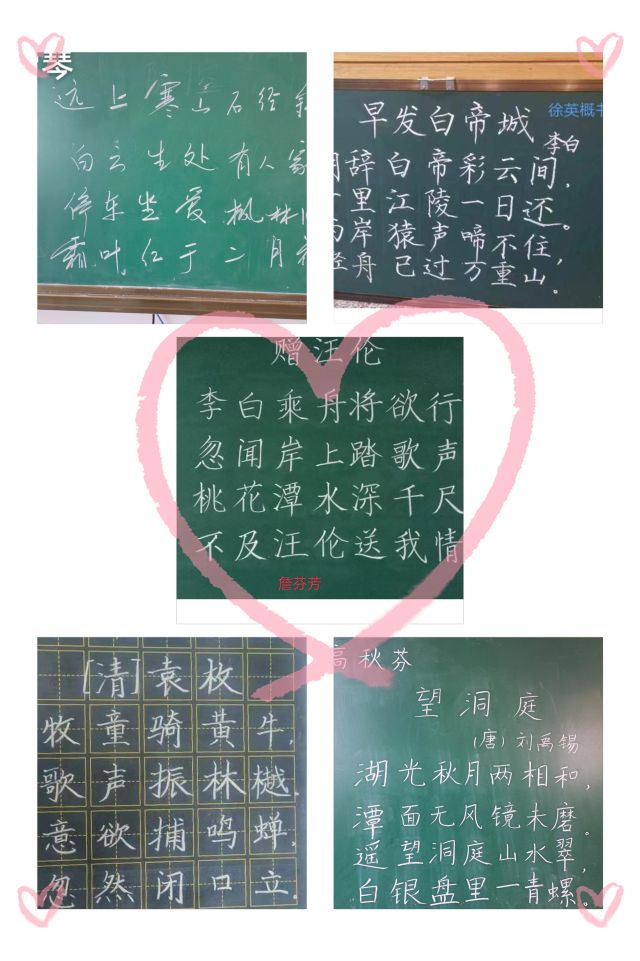 琴
远上寒山石径斜
白云生处有人家
停车坐爱枫林
霜叶红于二月花
徐英概书
早发白帝城
李白
朝辞白帝彩云间，
千里江陵一日还。
两岸猿声啼不住，
轻舟已过万重山。
赠汪伦
李白乘舟将欲行
忽闻岸上踏歌声
桃花潭水深千尺
不及汪伦送我情
詹芬芳
[清]袁枚
牧童骑黄牛，
歌声振林樾。
意欲捕鸣蝉，
忽然闭口立。
高秋芬
望洞庭
（唐）刘禹锡
湖光秋月两相和，
潭面无风镜未磨。
遥望洞庭山水翠，
白银盘里一青螺。